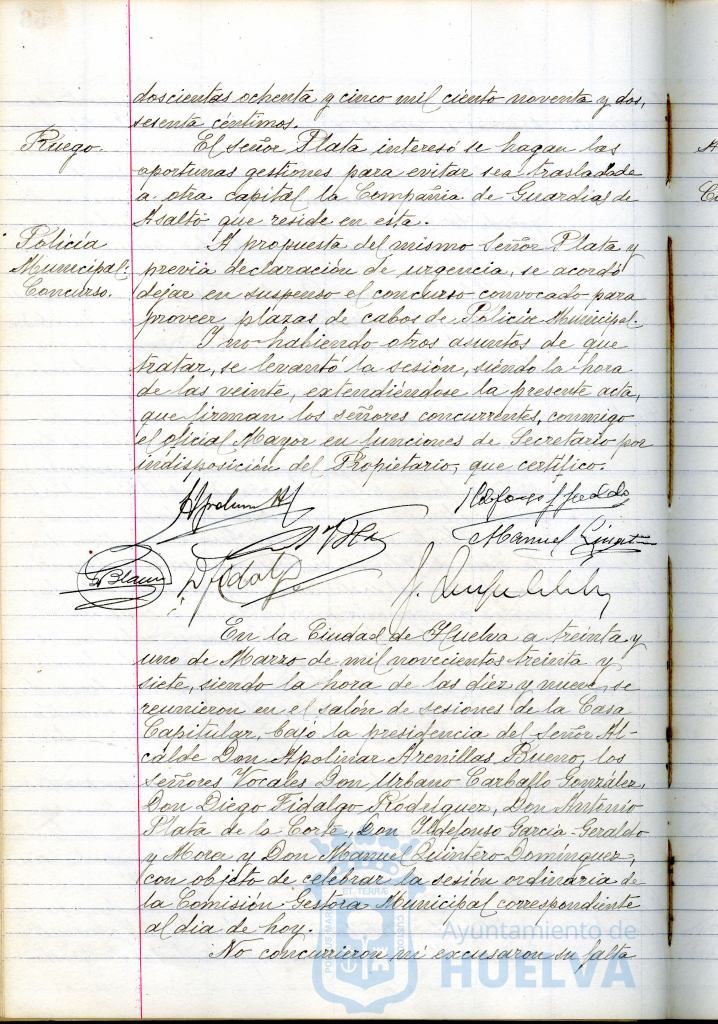 doscientas ochenta y cinco mil ciento noventa y dos,
sesenta céntimos.
Ruego.
El Señor Plata interesó se hagan las
oportunas gestiones para evitar sea trasladada
a otra capital la Compañia de Guardias de
Asalto que reside en esta.
Policía
Municipal.
Concurso.
A propuesta del mismo Señor Plata y
previa declaración de urgencia, se acordó
dejar en suspenso el concurso convocado para
proveer plazas de cabos de Policía Municipal.
Y no habiendo otros asuntos de que
tratar, se levantó la sesión, siendo la hora
de las veinte, extendiéndose la presente acta,
que firman los señores concurrentes, conmigo
el oficial Mayor en funciones de Secretario por
indisposición del Propietario, que certifico.
Manuel
D. Fidalgo
En la Ciudad de Huelva a treinta y
uno de Marzo de mil novecientos treinta y
siete, siendo la hora de las diez y nueve, se
reunieron en el salón de sesiones de la Casa
Capitular, bajo la presidencia del Señor Al-
calde Don Apolinar Arenillas Bueno, los
señores Vocales Don Urbano Carballo González,
Don Diego Fidalgo Rodríguez, Don Antonio
Plata de la Corte, Don Ildefonso Garcia-Geraldo
y Mora y Don Manuel Quintero Domínguez,
con objeto de celebrar la sesión ordinaria de
la Comisión Gestora Municipal correspondiente
al dia de hoy.
No concurrieron ni excusaron su falta
Ayuntamiento de
HUELVA